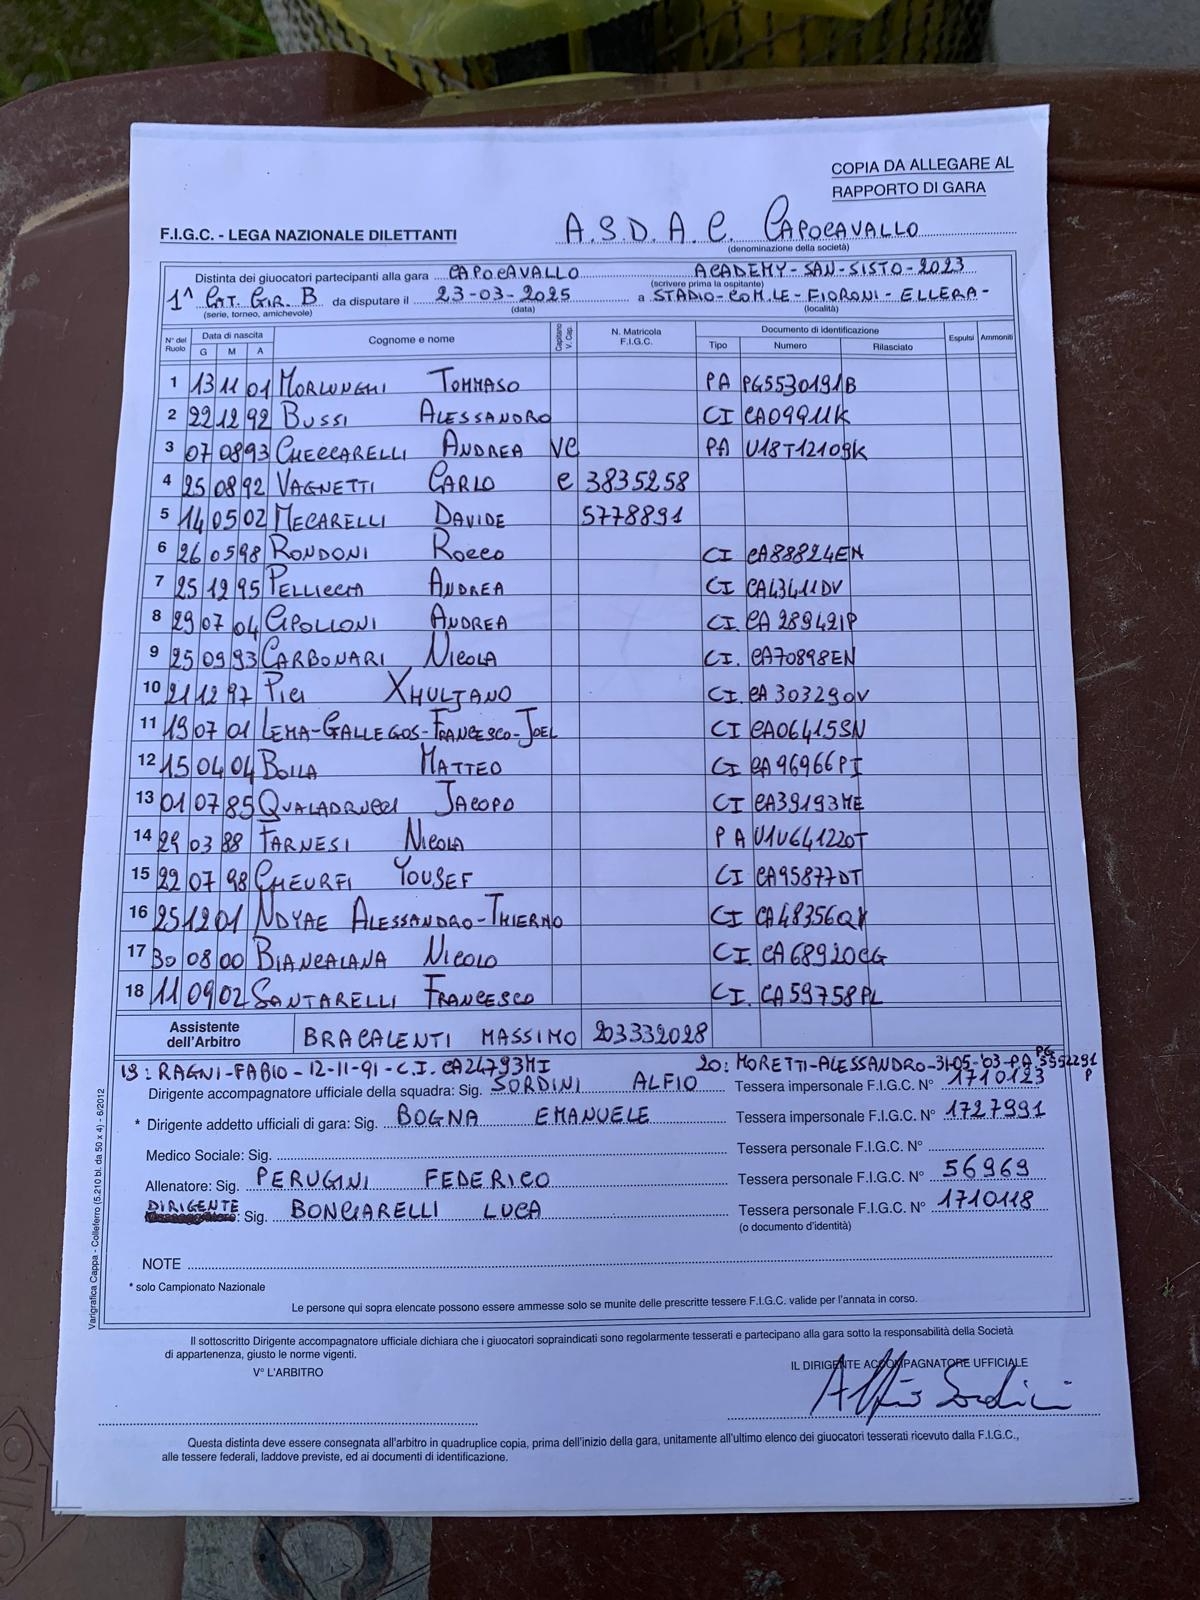 COPIA DA ALLEGARE AL
RAPPORTO DI GARA
F.I.G.C. - LEGA NAZIONALE DILETTANTI A.S.D. A.C. CAPOCAVALLO
(denominazione della società)
Distinta dei giuocatori partecipanti alla gara CAPOCAVALLO ACADEMY-SAN-SISTO-2023
(scrivere prima la ospitante)
1^ CAT. GIR. B da disputare il 23-03-2025 a STADIO-COM.LE-FIORONI-ELLERA-
(serie, torneo, amichevole) (data) (località)
N° del Ruolo Data di nascita G M A Cognome e nome Capitano V. Cap. N. Matricola F.I.G.C. Documento di identificazione Tipo Numero Rilasciato Espulsi Ammoniti
1 13 11 01 MORLUNGHI TOMMASO PA PG5530191B
2 22 12 92 BUSSI ALESSANDRO CI CA09911K
3 07 08 93 CHECCARELLI ANDREA VC PA U18T12109K
4 25 08 92 VAGNETTI CARLO C 3835258
5 14 05 02 MECARELLI DAVIDE 5778891
6 26 05 98 RONDONI ROCCO CI CA88824EN
7 25 12 95 PELLICCIA ANDREA CI CA43411DV
8 29 07 04 APOLLONI ANDREA CI. CA 28942IP
9 25 09 93 CARBONARI NICOLA CI. CA70898EN
10 21 12 97 PICI XHULJANO CI. CA 30329OV
11 19 07 01 LEMA-GALLEGOS-FRANCESCO-JOEL CI CA06415SN
12 15 04 04 BOILA MATTEO CI CA 96966PI
13 01 07 85 QUALADRUCCI JACOPO CI CA39193ME
14 29 03 88 FARNESI NICOLA PA U1U641220T
15 22 07 98 CHEURFI YOUSEF CI CA95877DT
16 25 12 01 NDYAE ALESSANDRO-THIERNO CI CA48356QX
17 30 08 00 BIANCALANA NICOLO CI. CA68920CG
18 11 09 02 SANTARELLI FRANCESCO CI. CA59758PL
Assistente dell'Arbitro BRACALENTI MASSIMO 203332028
19: RAGNI-FABIO-12-11-91-C.I. CA24793MI 20: MORETTI-ALESSANDRO-31-05-'03-PA PG
Dirigente accompagnatore ufficiale della squadra: Sig. SORDINI ALFIO Tessera impersonale F.I.G.C. N° 1710123
* Dirigente addetto ufficiali di gara: Sig. BOGNA EMANUELE Tessera impersonale F.I.G.C. N° 1727991
Medico Sociale: Sig. Tessera personale F.I.G.C. N°
Allenatore: Sig. PERUGINI FEDERICO Tessera personale F.I.G.C. N° 56969
DIRIGENTE : Sig. BONCIARELLI LUCA Tessera personale F.I.G.C. N° 1710118
(o documento d'identità)
NOTE
* solo Campionato Nazionale
Le persone qui sopra elencate possono essere ammesse solo se munite delle prescritte tessere F.I.G.C. valide per l'annata in corso.
Il sottoscritto Dirigente accompagnatore ufficiale dichiara che i giuocatori sopraindicati sono regolarmente tesserati e partecipano alla gara sotto la responsabilità della Società
di appartenenza, giusto le norme vigenti.
V° L'ARBITRO IL DIRIGENTE ACCOMPAGNATORE UFFICIALE
Alfio Sordini
Questa distinta deve essere consegnata all'arbitro in quadruplice copia, prima dell'inizio della gara, unitamente all'ultimo elenco dei giuocatori tesserati ricevuto dalla F.I.G.C.,
alle tessere federali, laddove previste, ed ai documenti di identificazione.
Varigrafica Cappa - Colleferro (5.210 bl. da 50 x 4) - 6/2012